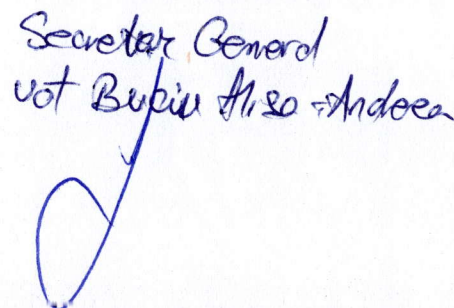 Secretar General
not Buciu Alisa-Andreea